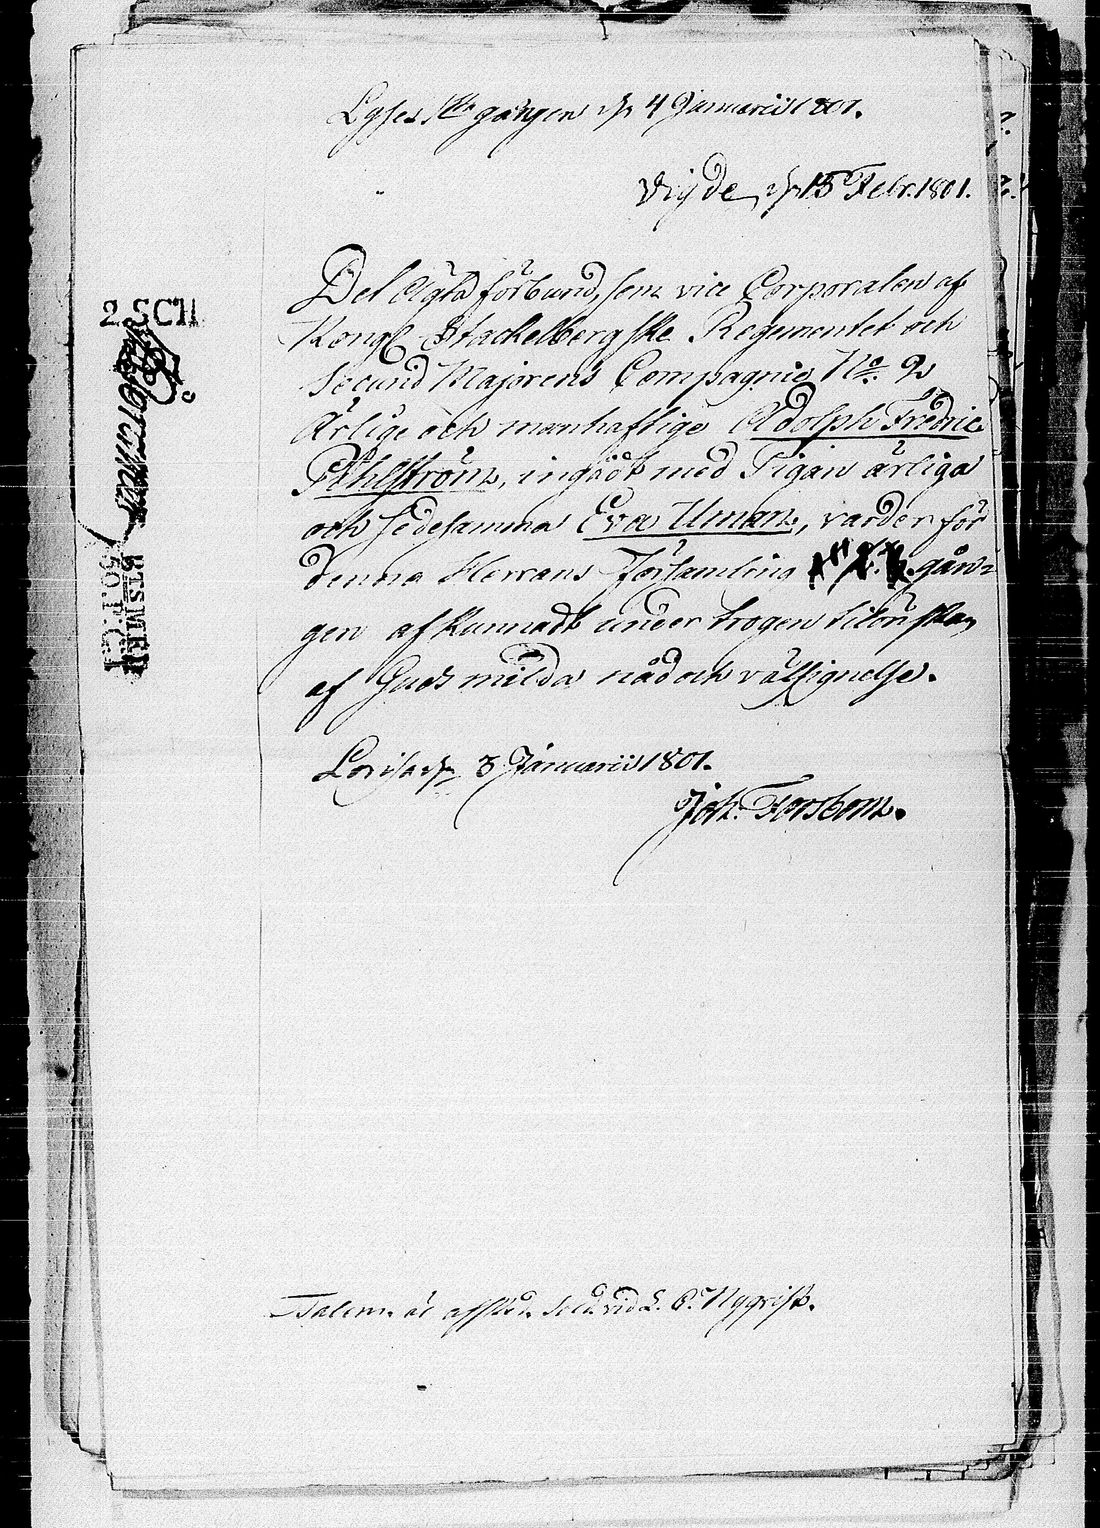 Lyses 1sta gången d. 4 Januarii 1801.
Vigde d. 15 Febr. 1801.
Det Ägta förbund, som vice Corporalen af
Kongl Stackelbergske Regementet och
Secund Majorens Compagnie No. 2
Ärlige och manhaftige Adolph Fredric
Åhlström, ingådt med Pigan ärliga
och sedesamma Eva Uman, varder för
denna Herrans Församling gån-
gen afkunnadt under trogen tilönskan
af Guds milda nåd och välsignelse.
Lovisa d. 3 Januarii 1801.
Joh. Forsbom.
2. SC